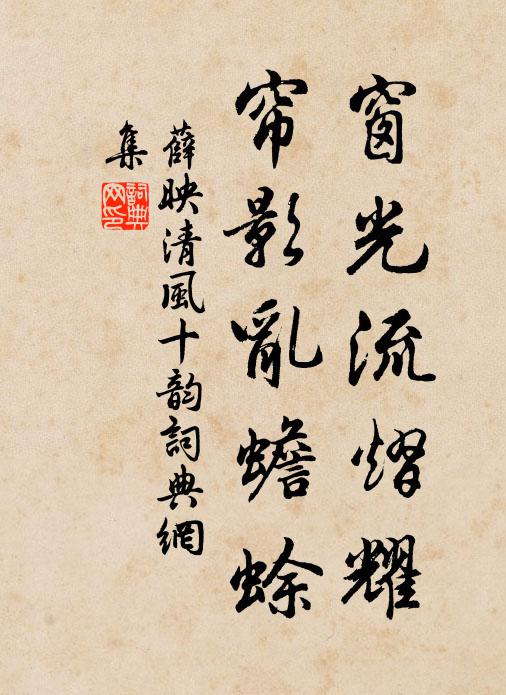 窗光流熠耀
帘影亂蟾蜍
薛映清風十韵詞典網
集
詞典网印